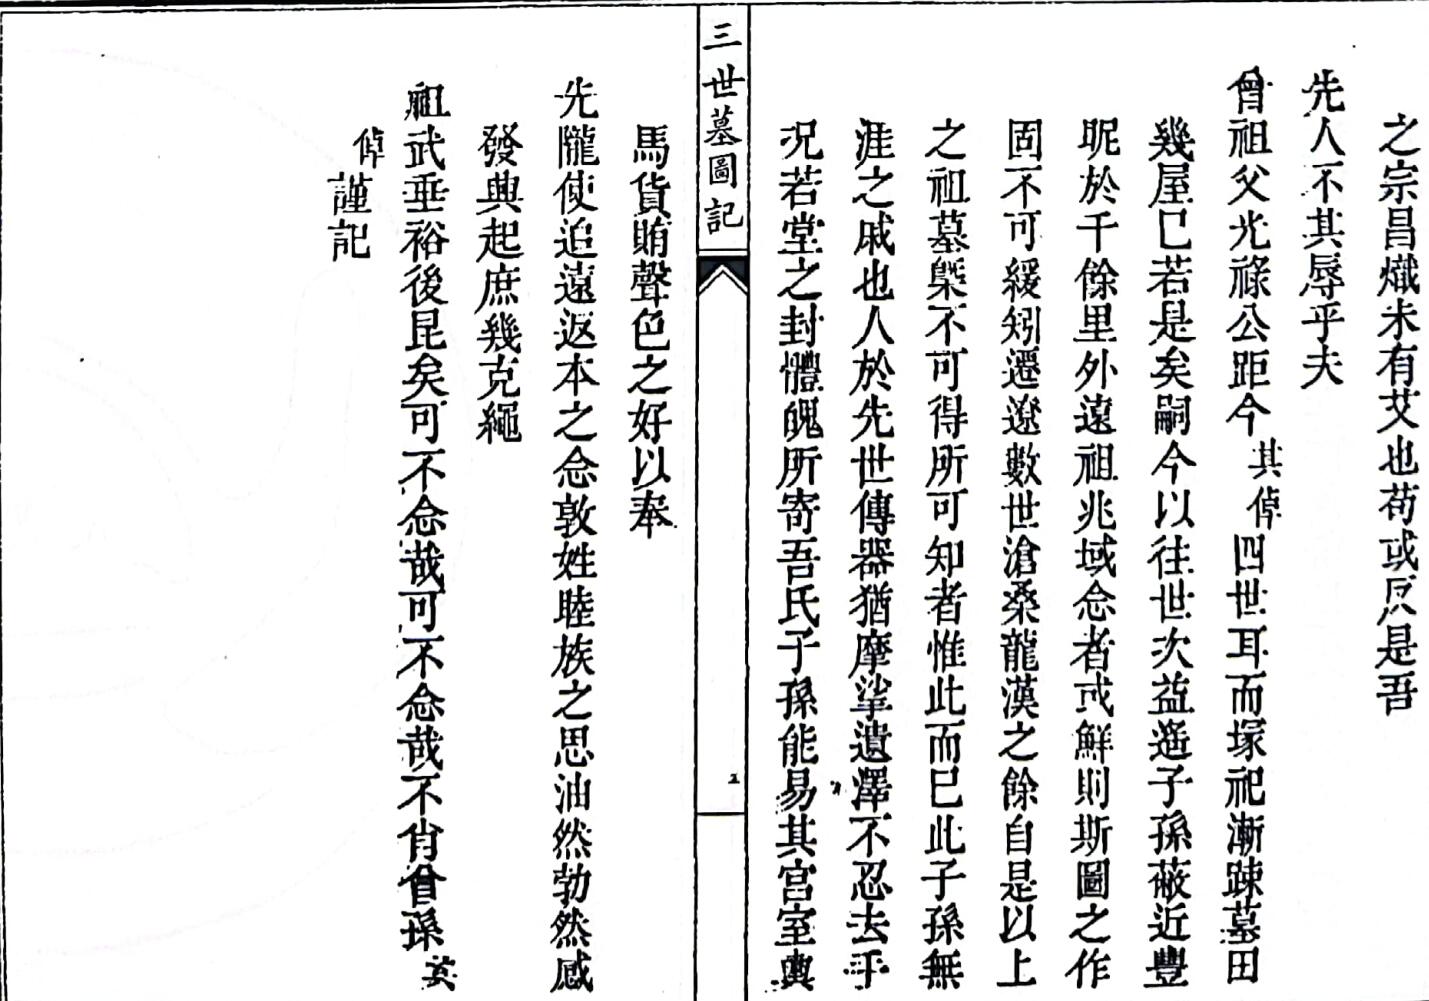 之宗昌熾未有艾也苟或反是吾
先人不其辱乎夫
曾祖父光祿公距今其倬四世耳而塚祀漸踈墓田
幾屋巳若是矣嗣今以往世次益遙子孫蔽近豐
昵於千餘里外遠祖兆域念者或鮮則斯圖之作
固不可緩矧遷遼數世滄桑龍漢之餘自是以上
之祖墓槩不可得所可知者惟此而巳此子孫無
涯之戚也人於先世傳器猶摩挲遺澤不忍去手
况若堂之封體魄所寄吾氏子孫能易其宮室輿
三世墓圖記
五
馬貨賄聲色之好以奉
先隴使追遠返本之念敦姓睦族之思油然勃然感
發興起庶幾克繩
祖武垂裕後昆矣可不念哉可不念哉不肖曾孫
倬謹記